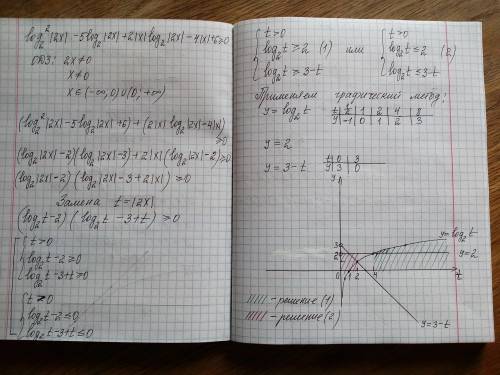 log₂²|2x| - 5log₂|2x| + 2|x|log₂|2x| - 4|x| + 6 ≥ 0
ОДЗ: 2x ≠ 0
x ≠ 0
x ∈ (-∞, 0) ∪ (0, +∞)
(log₂²|2x| - 5log₂|2x| + 6) + (2|x| log₂|2x| - 4|x|) ≥ 0
(log₂|2x| - 2)(log₂|2x| - 3) + 2|x|(log₂|2x| - 2) ≥ 0
(log₂|2x| - 2)(log₂|2x| - 3 + 2|x|) ≥ 0
Замена t = |2x|
(log₂t - 2)(log₂t - 3 + t) ≥ 0
t > 0
log₂t - 2 ≥ 0
log₂t - 3 + t ≥ 0
t > 0
log₂t - 2 ≤ 0
log₂t - 3 + t ≤ 0
t > 0
log₂t ≥ 2 (1)
log₂t ≥ 3 - t
или
t > 0
log₂t ≤ 2 (2)
log₂t ≤ 3 - t
Применяем графический метод:
y = log₂t
t 1/2 1 2 4 8
y -1 0 1 2 3
y = 2
y = 3 - t
t 0 3
y 3 0
y
3
2
0 1 2 4
t
y = log₂t
y = 2
y = 3 - t
- решение (1)
- решение (2)